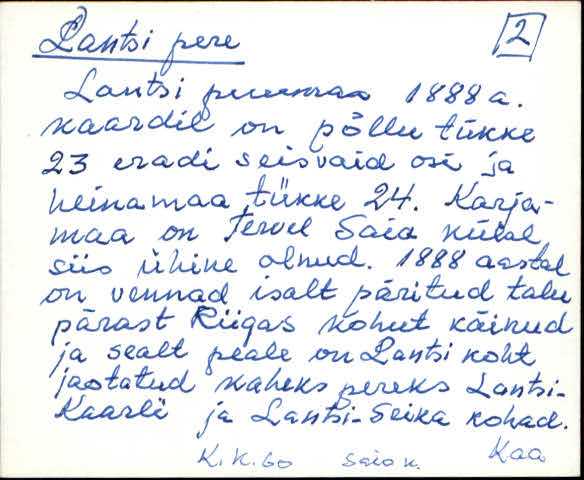 Lantsi pere 2
Lantsi 1888 a.
kaardil on põllu tükke
23 eradi seisvaid osi ja
heinamaa tükke 24. Karja-
maa on Tervel Saia külal
siis ühine olnud. 1888 aastal
on vennad isalt päritud talu
pärast Riigas kohut käinud
ja sealt peale on Lantsi koht
jaotatud kaheks pereks Lantsi-
Kaarli ja Lantsi-Seika kohad.
K.K. 60 Saia k. Kaa